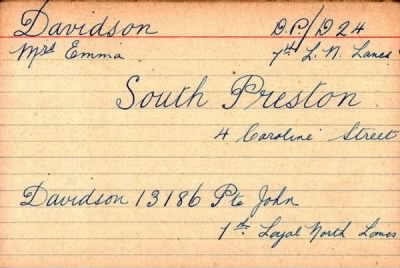 Davidson D.P/D24
Mrs Emma 7th L. N. Lancs
South Preston
4 Caroline Street
Davidson 13186 Pte John
7th. Loyal North Lancs